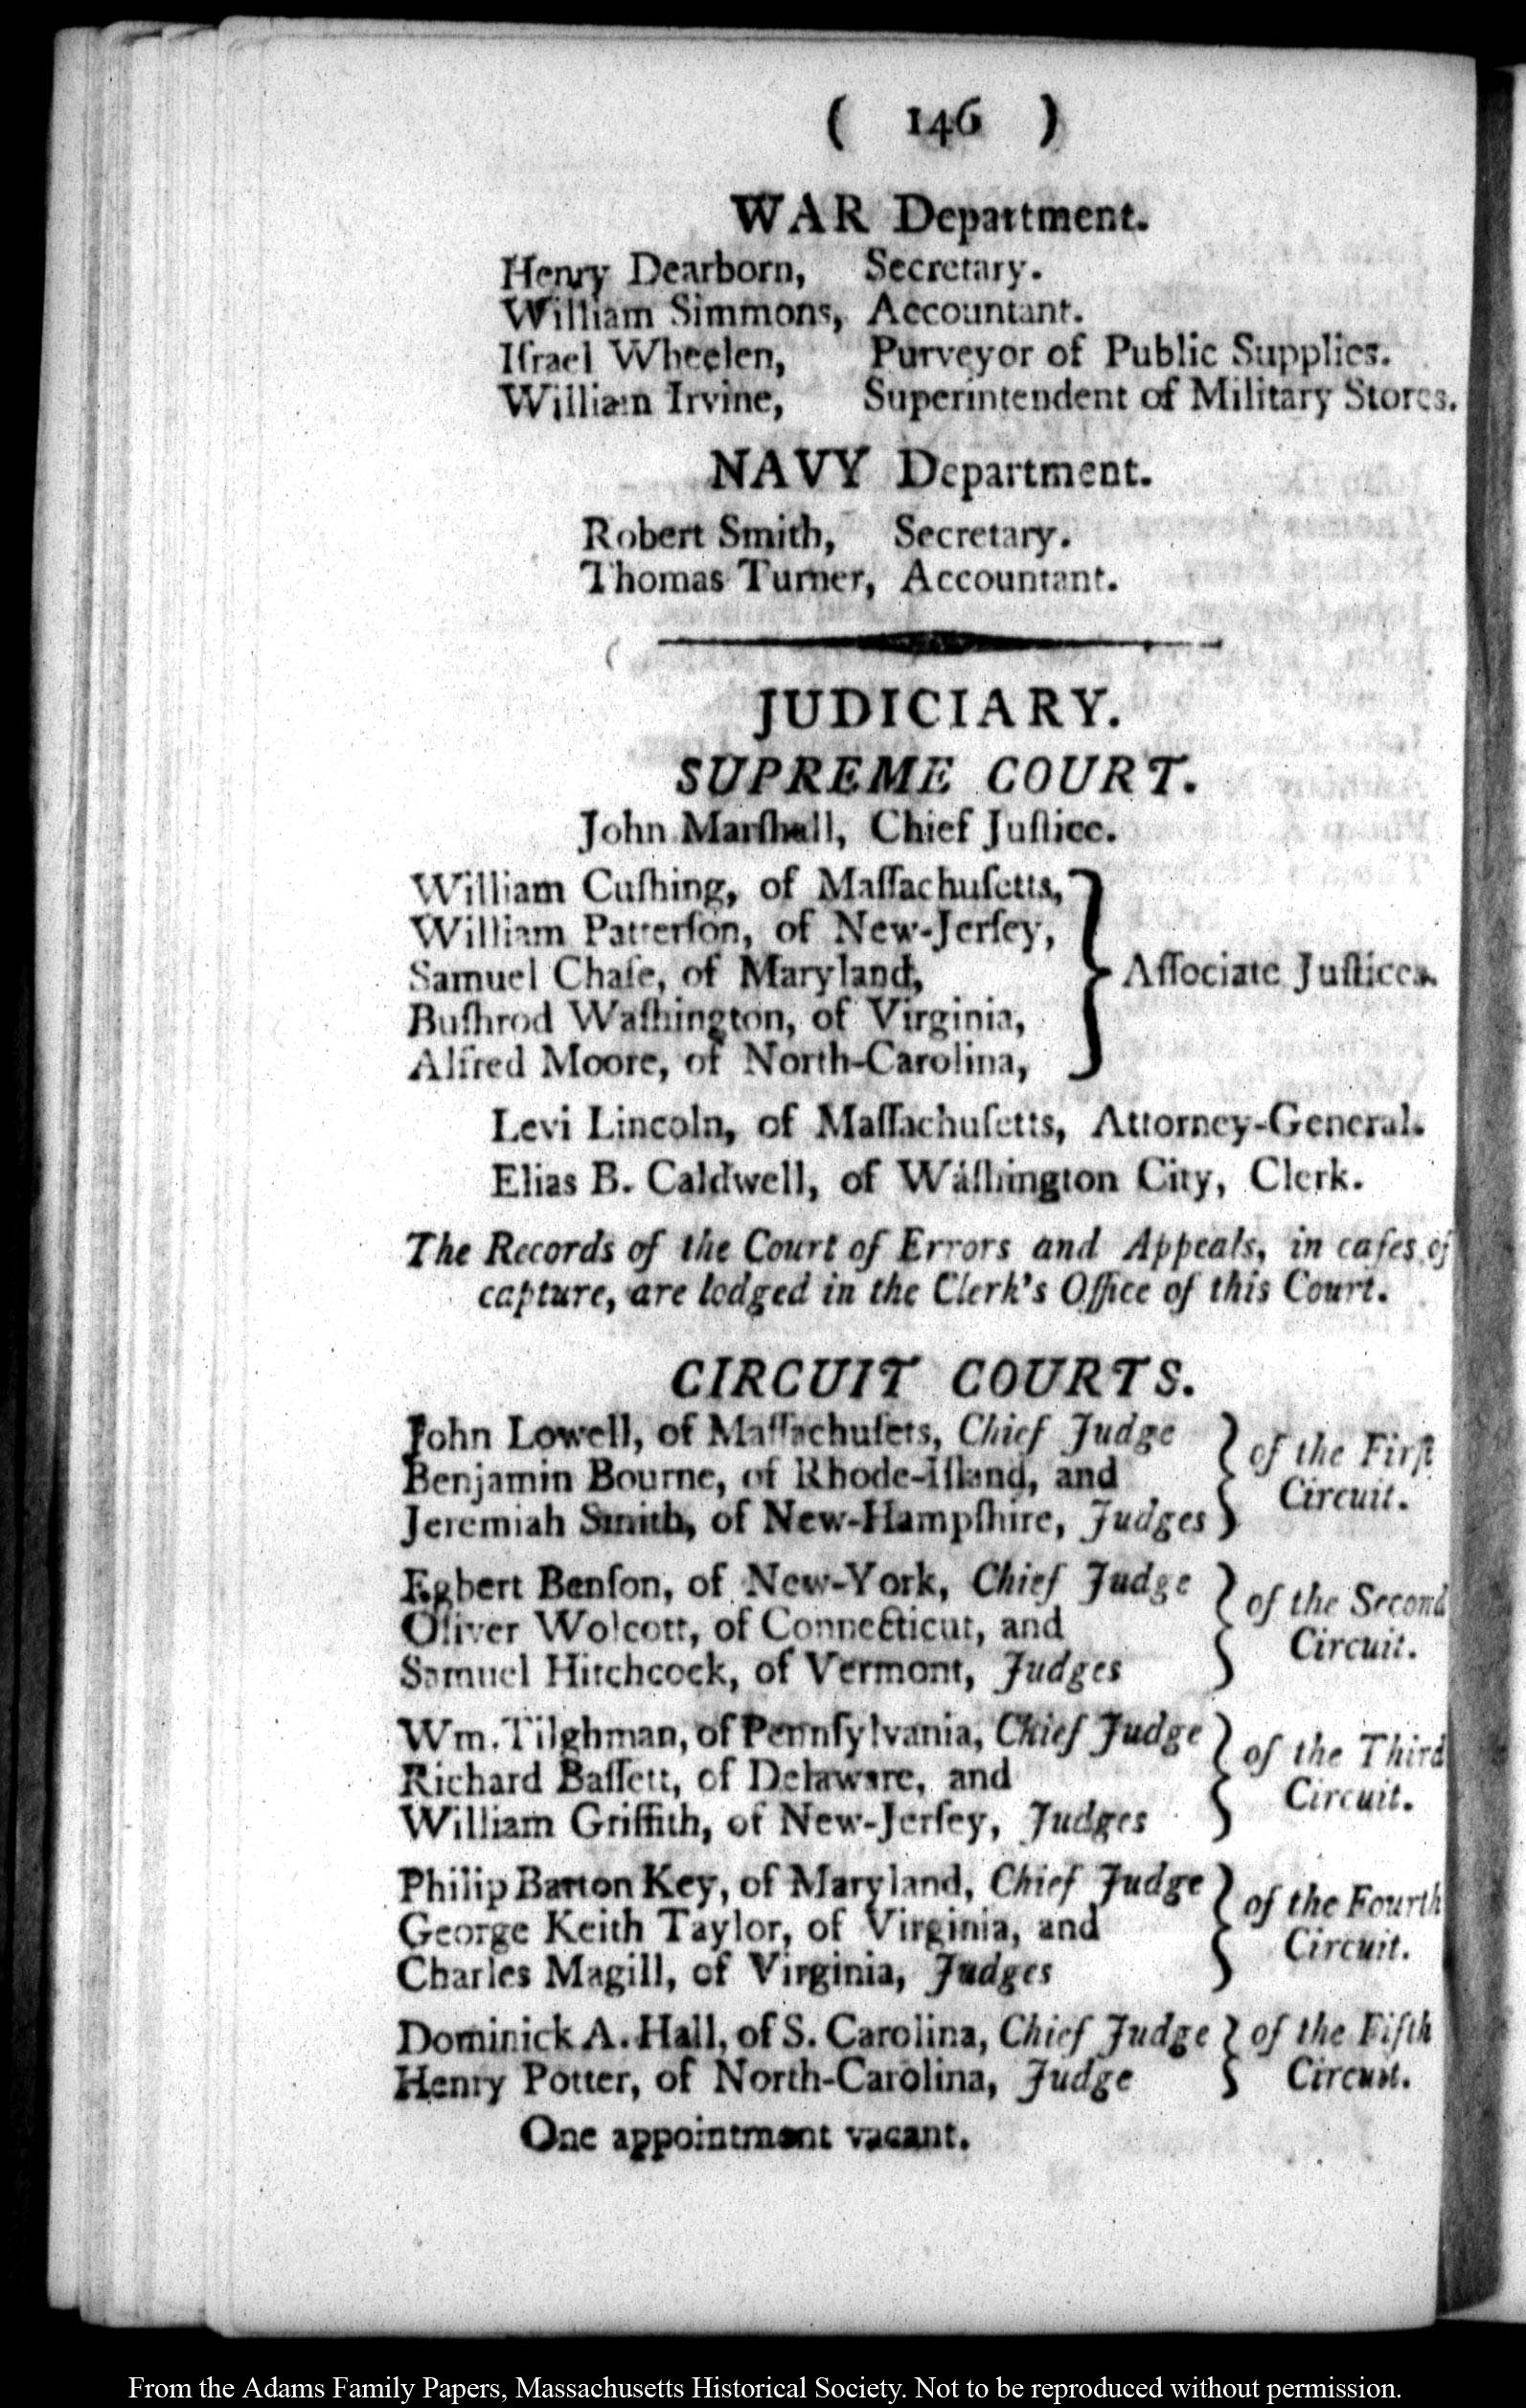 ( 146 )
WAR Department.
Henry Dearborn, Secretary.
William Simmons, Accountant.
Iſrael Wheelen, Purveyor of Public Supplies.
William Irvine, Superintendent of Military Stores.
NAVY Department.
Robert Smith, Secretary.
Thomas Turner, Accountant.
JUDICIARY.
SUPREME COURT.
John Marſhall, Chief Juſtice.
William Cuſhing, of Maſſachuſetts,
William Patterſon, of New-Jerſey,
Samuel Chaſe, of Maryland,
Buſhrod Waſhington, of Virginia,
Alfred Moore, of North-Carolina,
Aſſociate Juſtices.
Levi Lincoln, of Maſſachuſetts, Attorney-General.
Elias B. Caldwell, of Waſhington City, Clerk.
The Records of the Court of Errors and Appeals, in caſes of
capture, are lodged in the Clerk's Office of this Court.
CIRCUIT COURTS.
John Lowell, of Maſſachuſets, Chief Judge
Benjamin Bourne, of Rhode-Iſland, and
Jeremiah Smith, of New-Hampſhire, Judges
of the Firſt
Circuit.
Egbert Benſon, of New-York, Chief Judge
Oliver Wolcott, of Connecticut, and
Samuel Hitchcock, of Vermont, Judges
of the Second
Circuit.
Wm. Tilghman, of Pennſylvania, Chief Judge
Richard Baſſett, of Delaware, and
William Griffith, of New-Jerſey, Judges
of the Third
Circuit.
Philip Barton Key, of Maryland, Chief Judge
George Keith Taylor, of Virginia, and
Charles Magill, of Virginia, Judges
of the Fourth
Circuit.
Dominick A. Hall, of S. Carolina, Chief Judge
Henry Potter, of North-Carolina, Judge
of the Fifth
Circuit.
One appointment vacant.
From the Adams Family Papers, Massachusetts Historical Society. Not to be reproduced without permission.